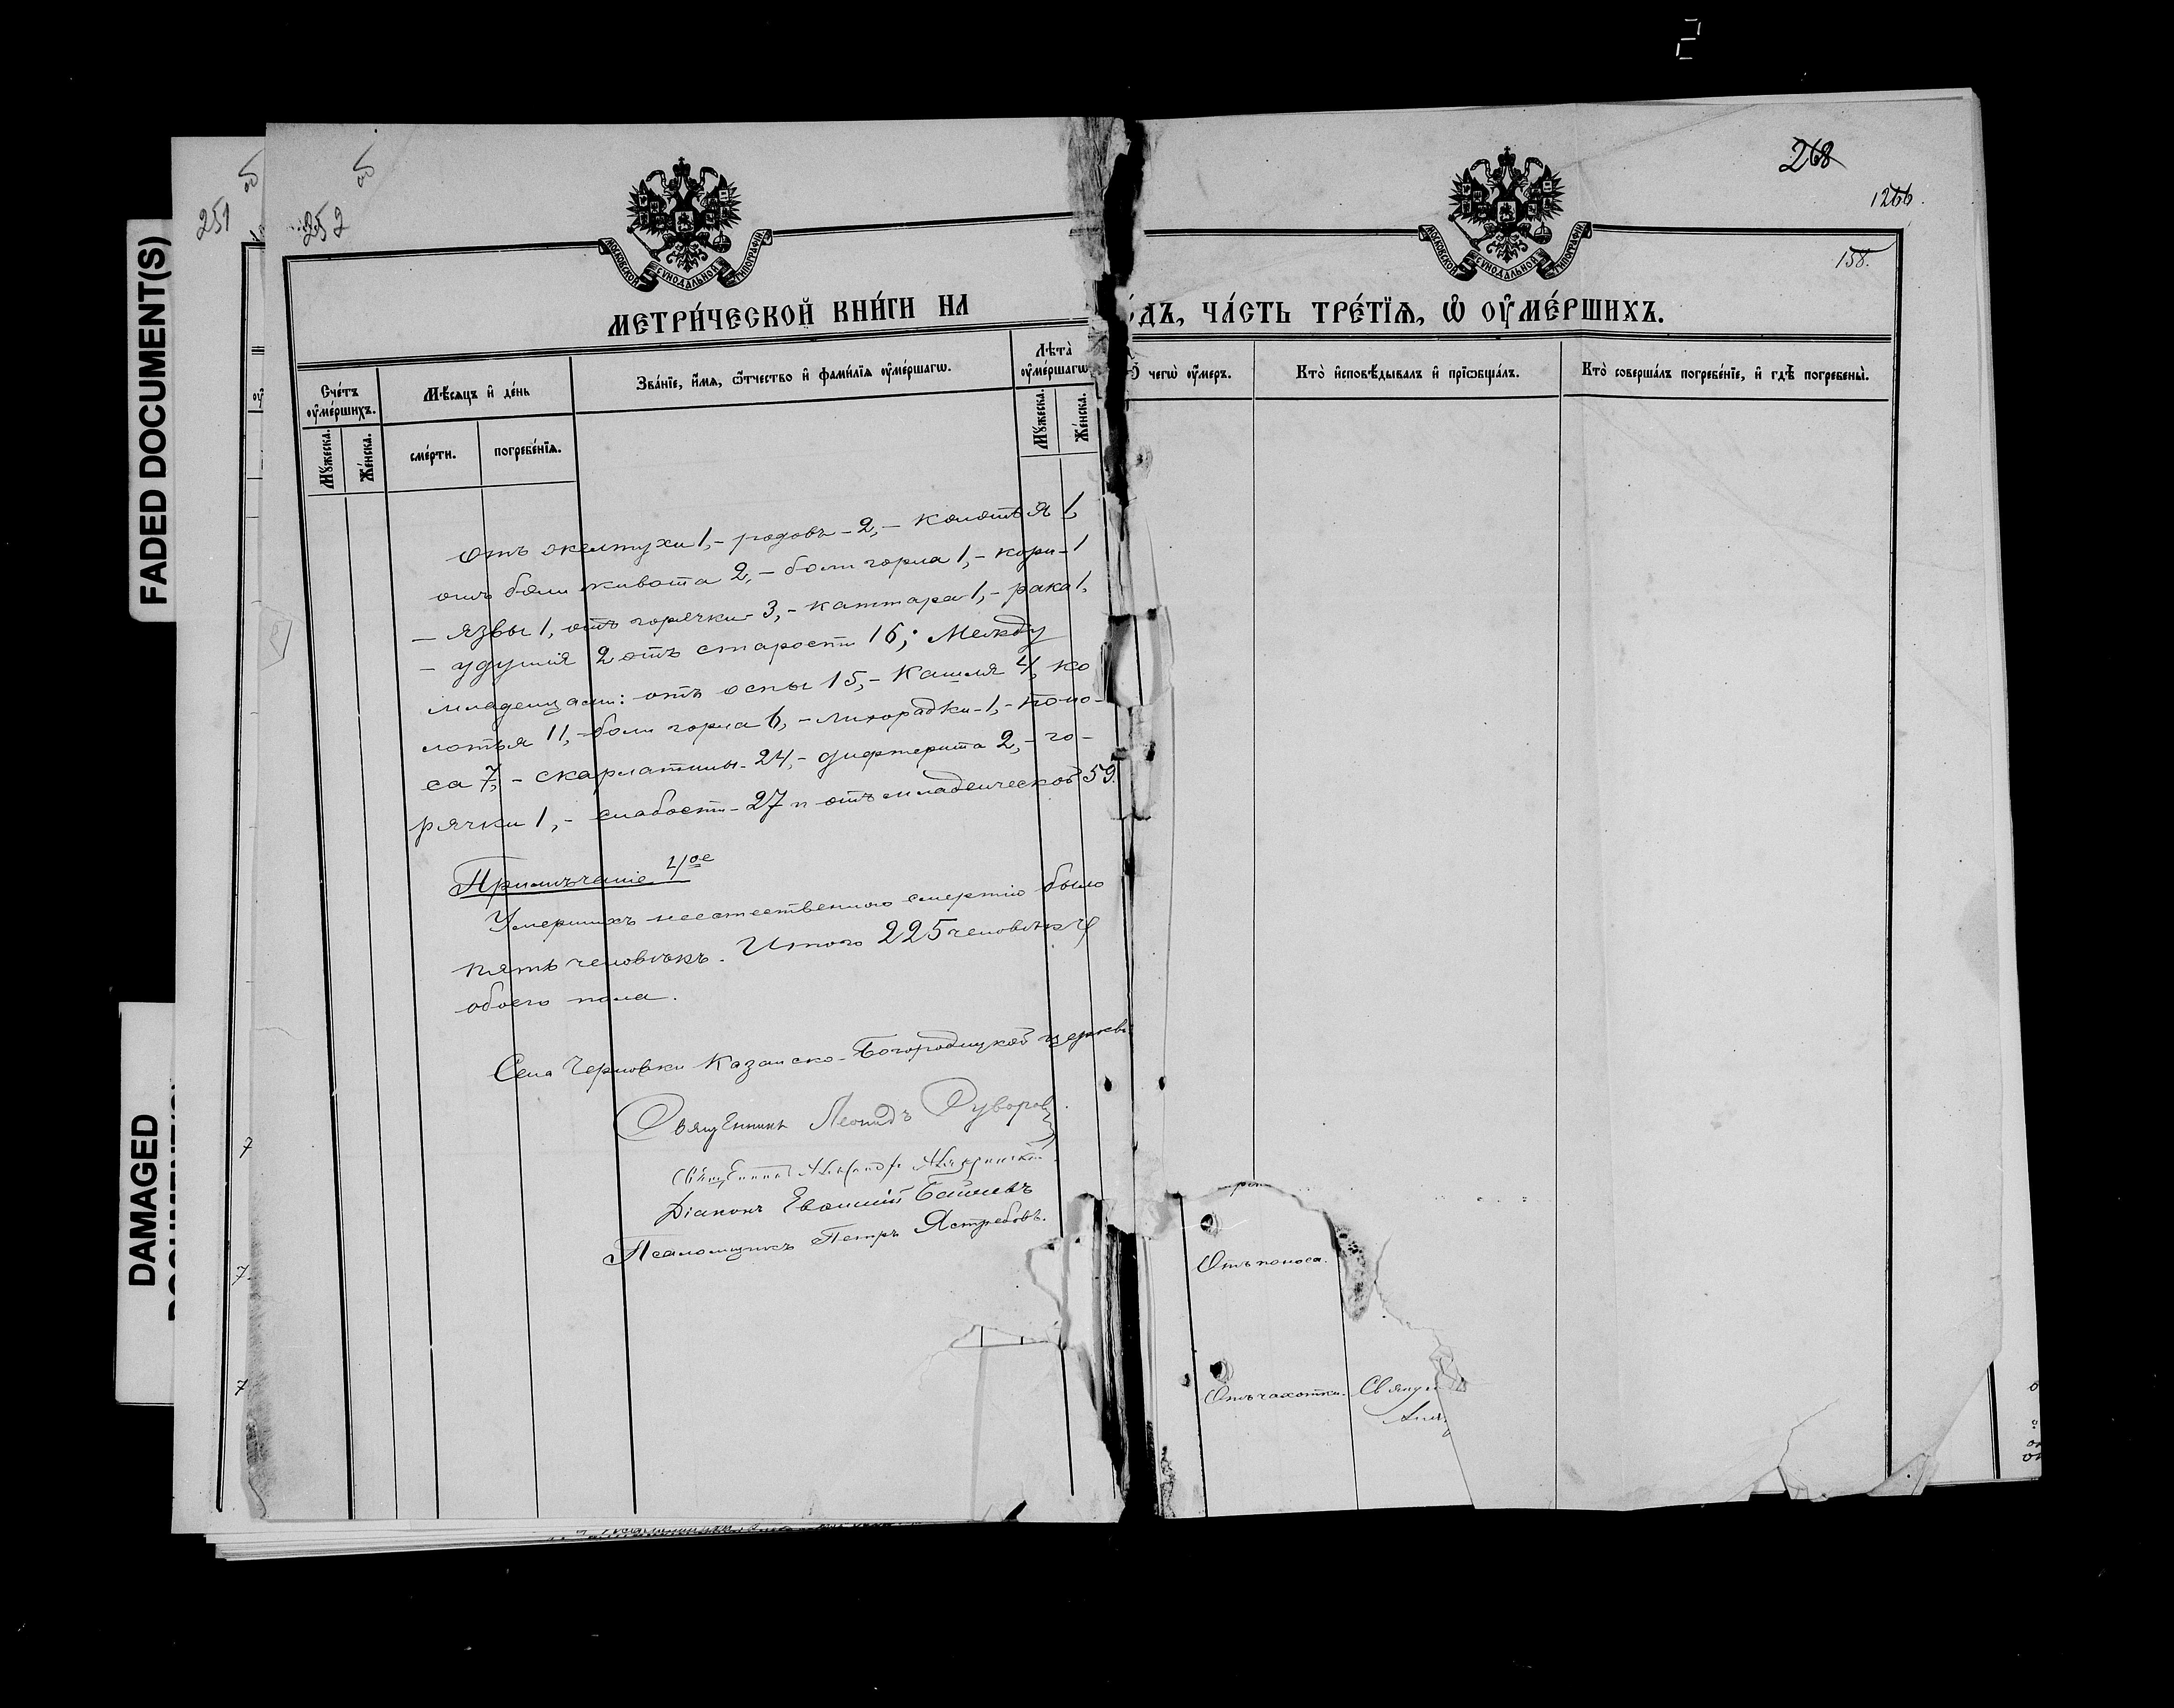 2
FADED DOCUMENT(S)
DAMAGED
251 об
252 об
268
1266.
158.
МОСКОВСКОЙ СѴНОДАЛЬНОЙ ТИПОГРАФІИ
МОСКОВСКОЙ СѴНОДАЛЬНОЙ ТИПОГРАФІИ
МЕТРИ́ЧЕСКОЙ КНИ́ГИ НА
ДЪ, ЧА́СТЬ ТРЕ́ТЇѦ, Ѡ҆ ОУ҆МЕ́РШИХЪ.
Сче́тъ оу҆ме́ршихъ.
Мꙋ́жеска.
Же́нска.
Мѣ́сѧцъ и҆ де́нь
сме́рти.
погребе́нїѧ.
Зва́нїе, и҆́мѧ, ѻ҆́тчество и҆ фами́лїѧ оу҆ме́ршагѡ.
Лѣта̀ оу҆ме́ршагѡ
Мꙋ́жеска.
Же́нска.
чегѡ̀ оу҆́меръ.
Кто̀ и҆сповѣ́дывалъ и҆ прїѡбща́лъ.
Кто̀ соверша́лъ погребе́нїе, и҆ гдѣ̀ погребены̀.
Отъ желтухи 1,- родовъ - 2,- колотья 1,
отъ боли живота 2,- боли горла 1,- кори - 1
- язвы 1, отъ горячки - 3,- каттара 1,- рака 1,
- удушія 2 отъ старости 16; Между
младенцами: отъ оспы 15,- Кашля 4, ко
лотья 11,- боли горла 6,- лихорадки - 1,- поно-
са 7,- скарлатины - 24,- дифтерита 2,- го-
рячки 1,- слабости - 27 и отъ младенческой 59.
Примѣчаніе 4ое
Умершихъ неестественною смертію было
пять человѣкъ. Итого 225 человѣкъ
обоего пола.
Села Черновки Казанско-Богородицкой церкви
Священникъ Леонидъ Суворовъ.
Священникъ Александръ
Діаконъ Евѳимій
Псаломщикъ Петръ Ястребовъ.
Отъ поноса.
Отъ чахотки.
7
7.
7